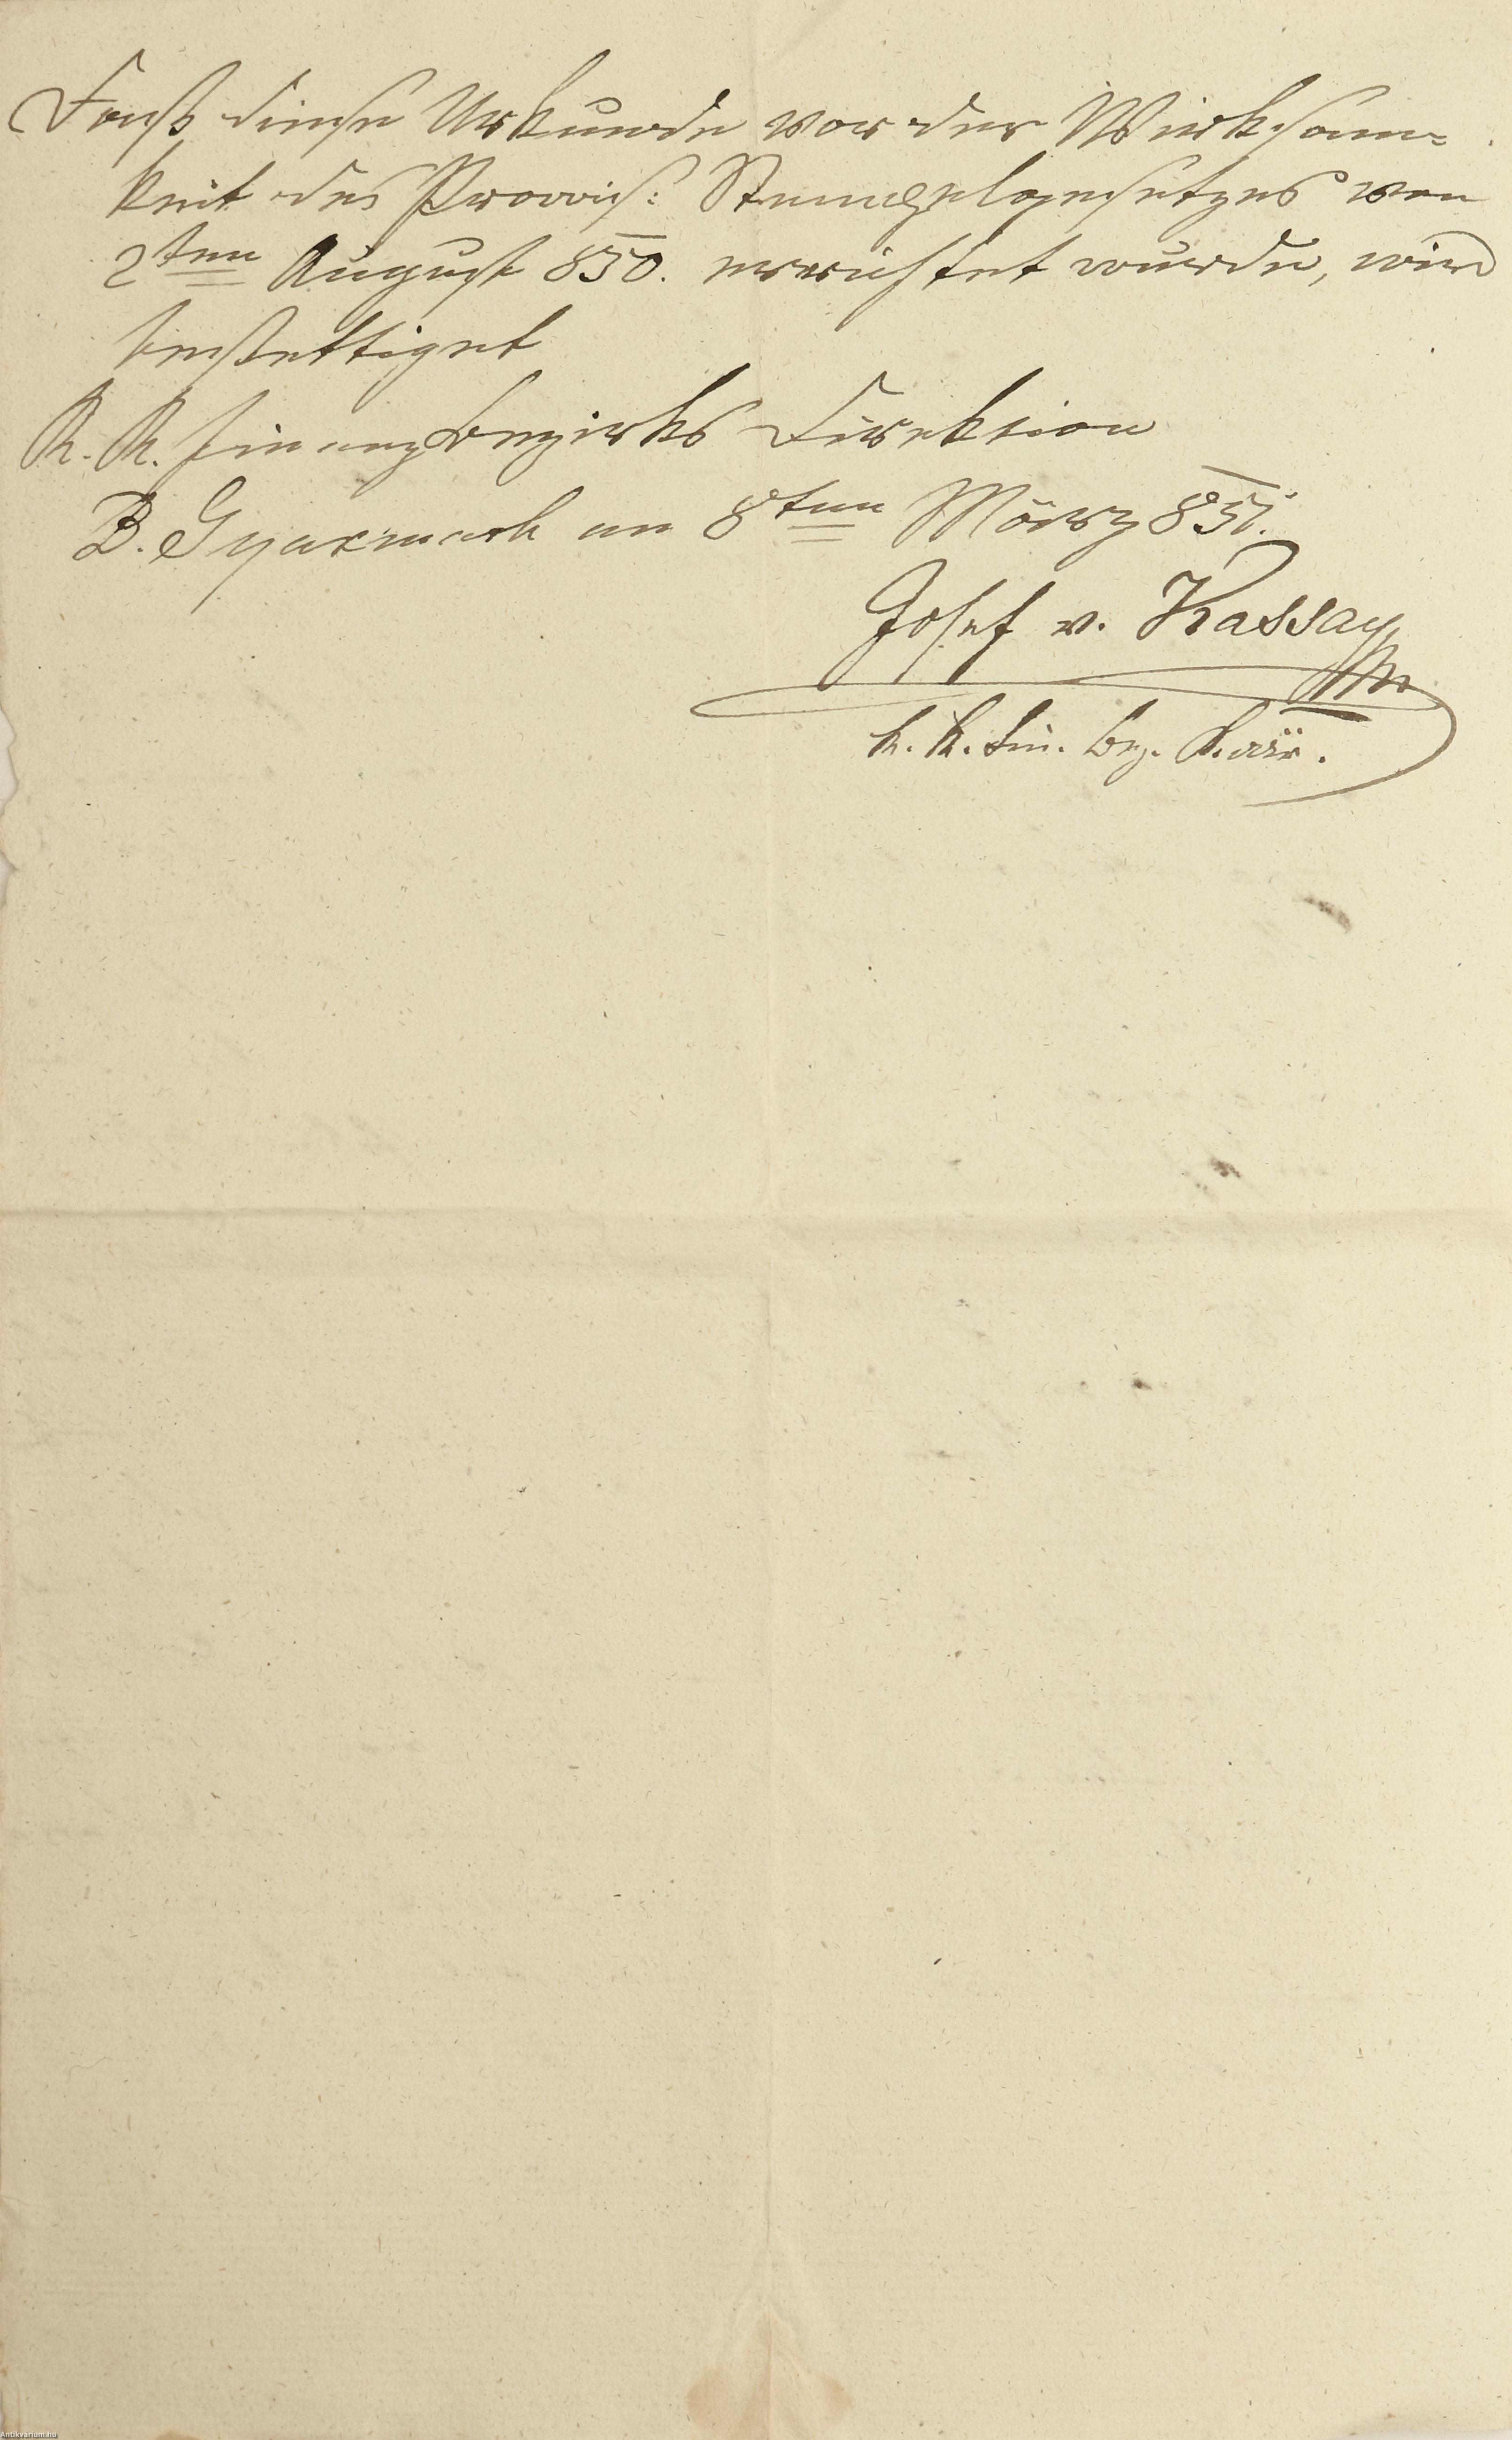 Daß diese Urkunde vor der Wirksam=
keit des Provis: Stempelgesetzes von
2ten August 850. errichtet wurde, wird
bestettiget
K. K. Finanz bezirks Direktion
B. Gyarmath am 8ten März 851.
Josef v. Kassay
k. k. Fin. bez.
Antikvarium.hu